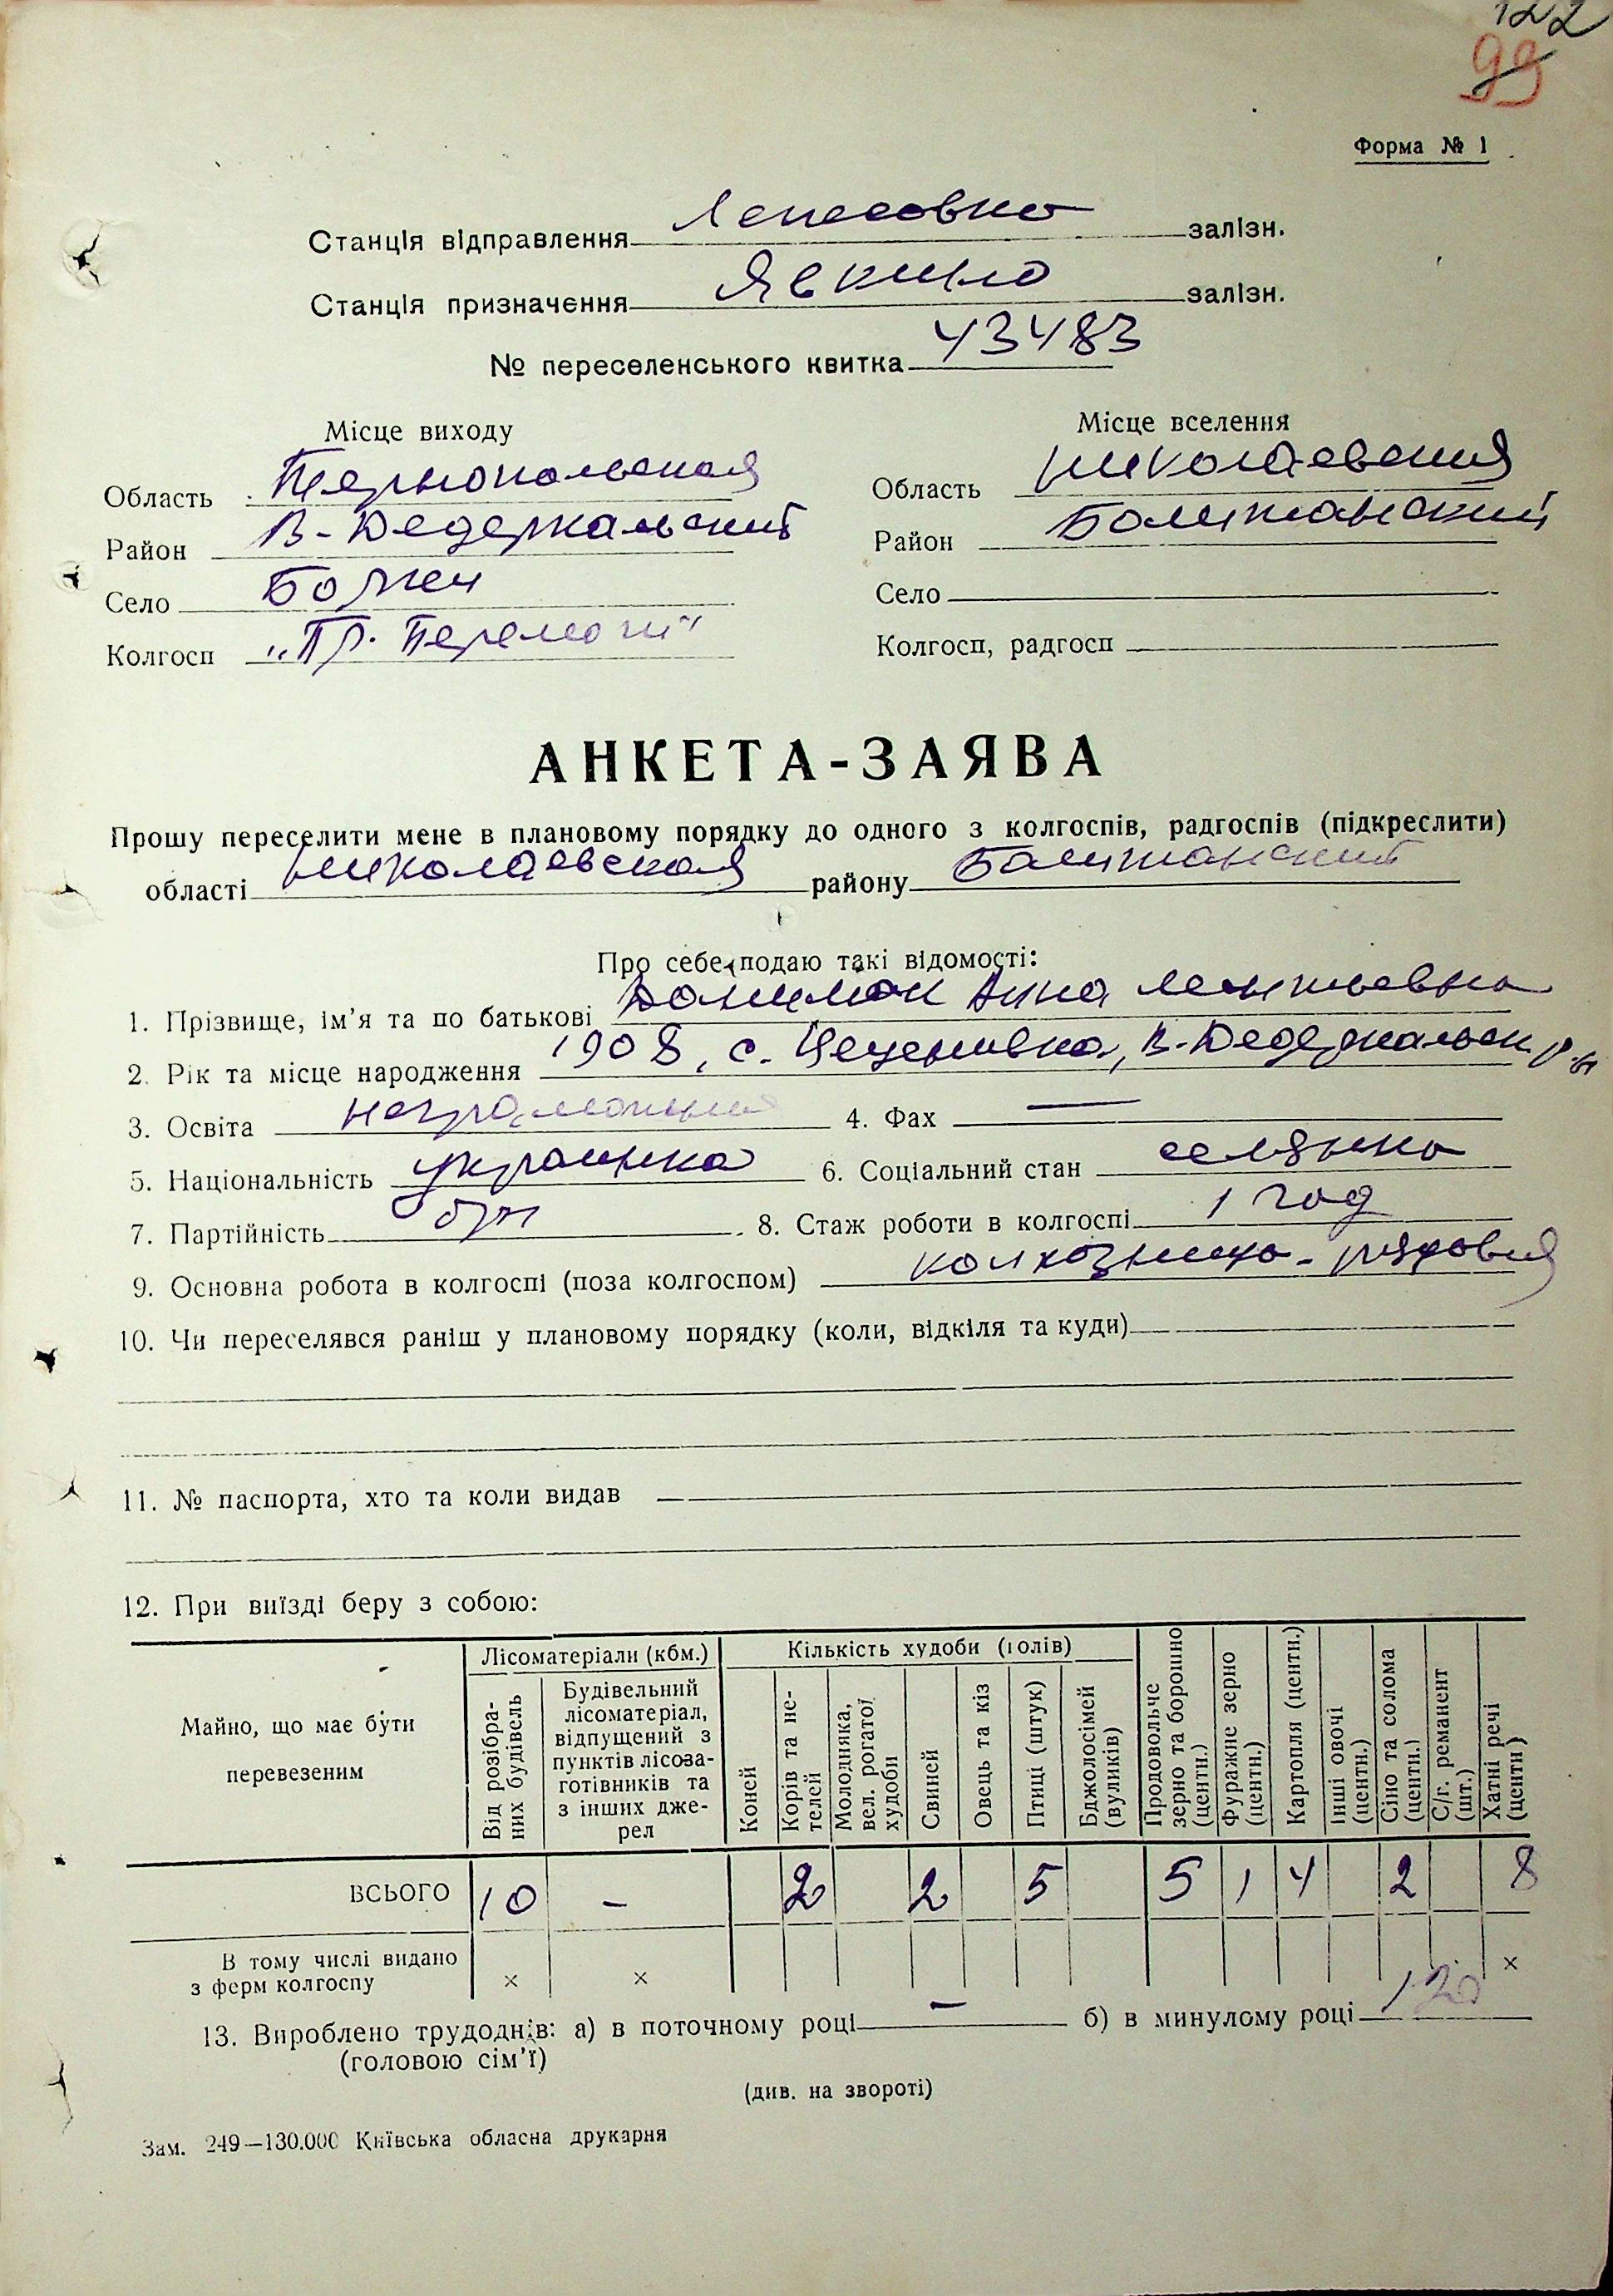 122
99
Форма № 1
Станція відправлення Лепесовка залізн.
Станція призначення Явкино залізн.
№ переселенського квитка 43483
Місце виходу
Місце вселення
Область Тернопольская
Область Николаевская
Район В-Дедеркальский
Район Баштанский
Село Божен
Село
Колгосп „Пр. Перемоги"
Колгосп, радгосп
АНКЕТА-ЗАЯВА
Прошу переселити мене в плановому порядку до одного з колгоспів, радгоспів (підкреслити)
області Николаевская району Баштанский
Про себе подаю такі відомості:
1. Прізвище, ім'я та по батькові Анна
2. Рік та місце народження 1908, с. Цеценивка, В-Дедеркальск. р-н
3. Освіта неграмотная 4. Фах —
5. Національність украинка 6. Соціальний стан селянка
7. Партійність б/п 8. Стаж роботи в колгоспі 1 год
9. Основна робота в колгоспі (поза колгоспом) колхозница-рядовая
10. Чи переселявся раніш у плановому порядку (коли, відкіля та куди) —
11. № паспорта, хто та коли видав —
12. При виїзді беру з собою:
Майно, що має бути перевезеним
Лісоматеріали (кбм.)
Кількість худоби (голів)
Від розібраних будівель
Будівельний лісоматеріал, відпущений з пунктів лісозаготівників та з інших джерел
Коней
Корів та нетелей
Молодняка, вел. рогатої худоби
Свиней
Овець та кіз
Птиці (штук)
Бджолосімей (вуликів)
Продовольче зерно та борошно (центн.)
Фуражне зерно (центн.)
Картопля (центн.)
Інші овочі (центн.)
Сіно та солома (центн.)
С/г. реманент (шт.)
Хатні речі (центн)
ВСЬОГО 10 – 2 2 5 5 1 4 2 8
В тому числі видано з ферм колгоспу × × ×
13. Вироблено трудоднів: а) в поточному році — б) в минулому році 120
(головою сім'ї)
(див. на звороті)
Зам. 249—130.000 Київська обласна друкарня